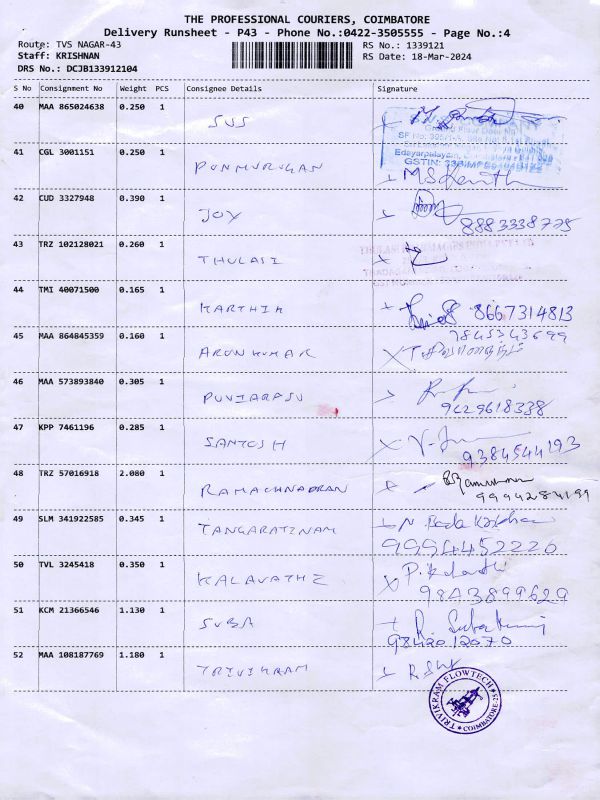 THE PROFESSIONAL COURIERS, COIMBATORE
Delivery Runsheet - P43 - Phone No.:0422-3505555 - Page No.:4
Route: TVS NAGAR-43 RS No.: 1339121
Staff: KRISHNAN RS Date: 18-Mar-2024
DRS No.: DCJB133912104
S No Consignment No Weight PCS Consignee Details Signature
40 MAA 865024638 0.250 1 SUS
GSTIN: 33
41 CGL 3001151 0.250 1 PONMURUGAN
42 CUD 3327948 0.390 1 JOY 8883338775
43 TRZ 102128021 0.260 1 THULASI
44 TMI 40071500 0.165 1 KARTHIK 8667314813
7845343699
45 MAA 864845359 0.160 1 ARUNKUMAR
46 MAA 573893840 0.305 1 PUVIARASU
9629618338
47 KPP 7461196 0.285 1 SANTOSH
9384544193
48 TRZ 57016918 2.080 1 RAMACHNADRAN
9994284199
49 SLM 341922585 0.345 1 TANGARATINAM
9994452220
50 TVL 3245418 0.350 1 KALAVATHI
9843899629
51 KCM 21366546 1.130 1 SUBA
9842012070
52 MAA 108187769 1.180 1 TRIVIKRAM
TRIVIKRAM FLOWTECH
COIMBATORE